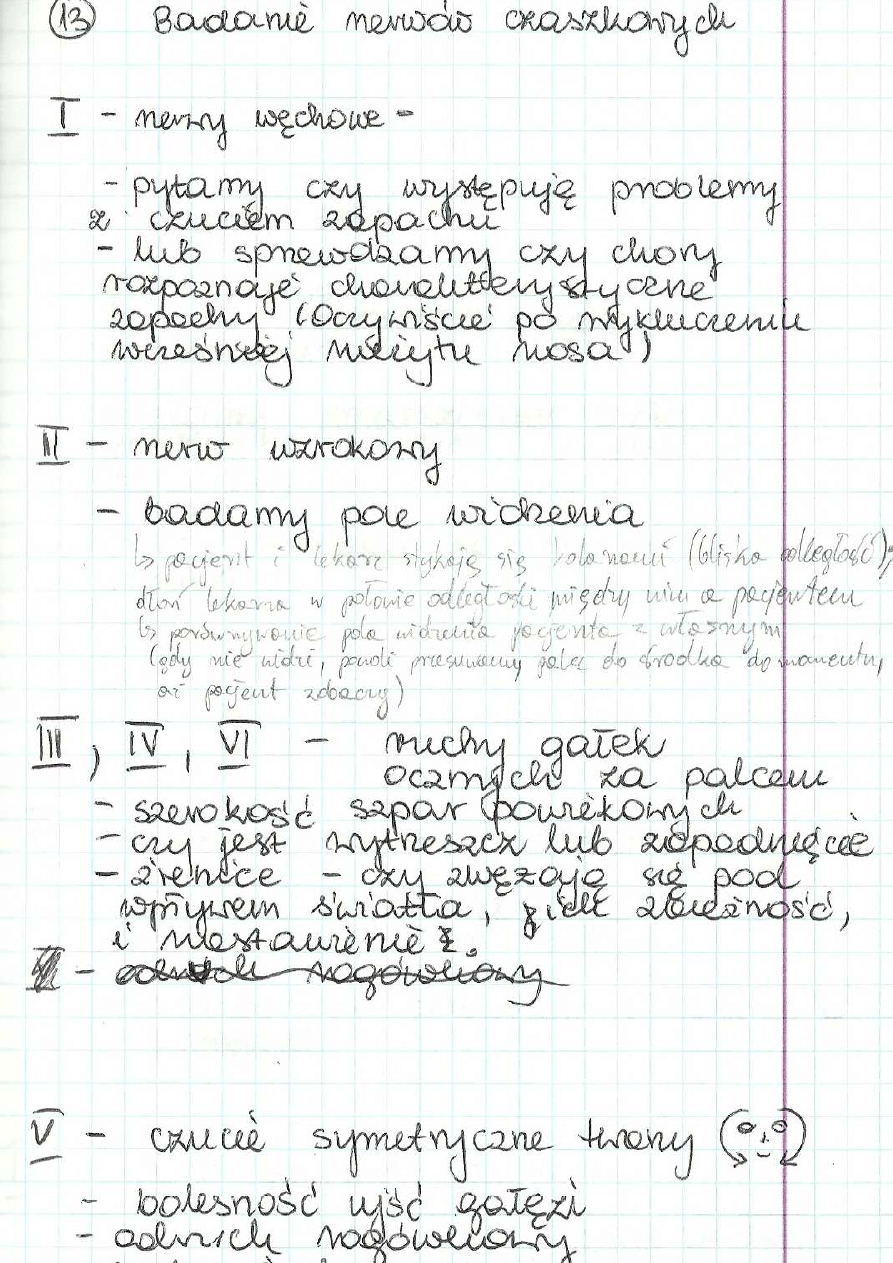 13 Badanie nerwów czaszkowych
I - nerwy węchowe -
- pytamy czy występują problemy
z czuciem zapachu
- lub sprawdzamy czy chory
rozpoznaje charakterystyczne
zapachy (Oczywiście po wykluczeniu
wcześniej nieżytu nosa)
II - nerw wzrokowy
- badamy pole widzenia
↳ pacjent i lekarz stykają się kolanami (bliska odległość);
dłoń lekarza w połowie odległości między nim a pacjentem
↳ porównywanie pola widzenia pacjenta z własnym
(gdy nie widzi, powoli przesuwamy palec do środka do momentu,
aż pacjent zobaczy)
III, IV, VI - ruchy gałek
ocznych za palcem
- szerokość szpar powiekowych
- czy jest wytrzeszcz lub zapadnięcie
- źrenice - czy zwężają się pod
wpływem światła, zbieżność,
i nastawienie
- odruch rogówkowy
V - czucie symetryczne twarzy
- bolesność ujść gałęzi
- odruch rogówkowy